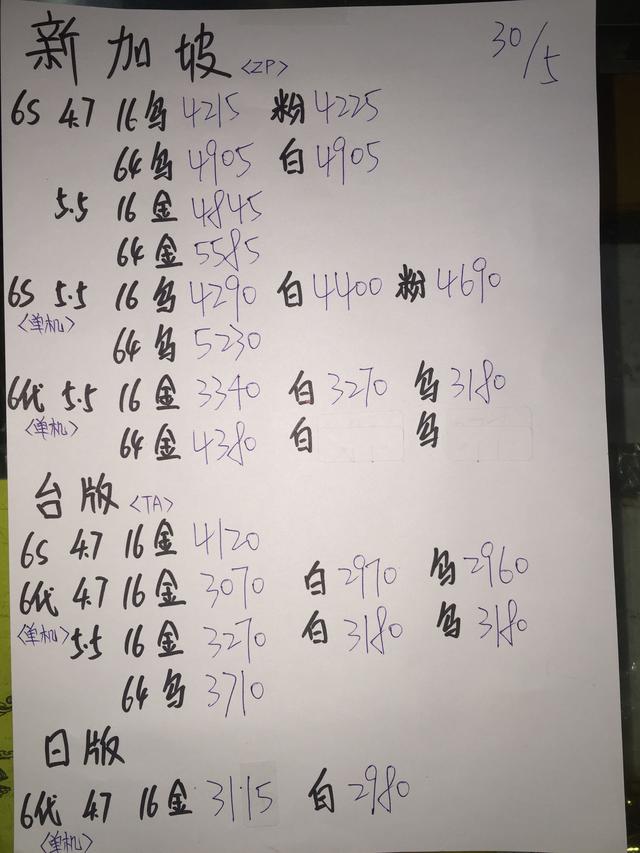 新加坡<ZP> 30/5
6S 4.7 16乌4215 粉4225
64乌4905 白4905
5.5 16金4845
64金5585
6S 5.5 16乌4290 白4400 粉4690
<单机>
64乌5230
6代 5.5 16金3340 白3270 乌3180
<单机>
64金4380 白 乌
台版<TA>
6S 4.7 16金4120
6代 4.7 16金3070 白2970 乌2960
<单机> 5.5 16金3270 白3180 乌3180
64乌3710
日版
6代 4.7 16金3115 白2980
<单机>